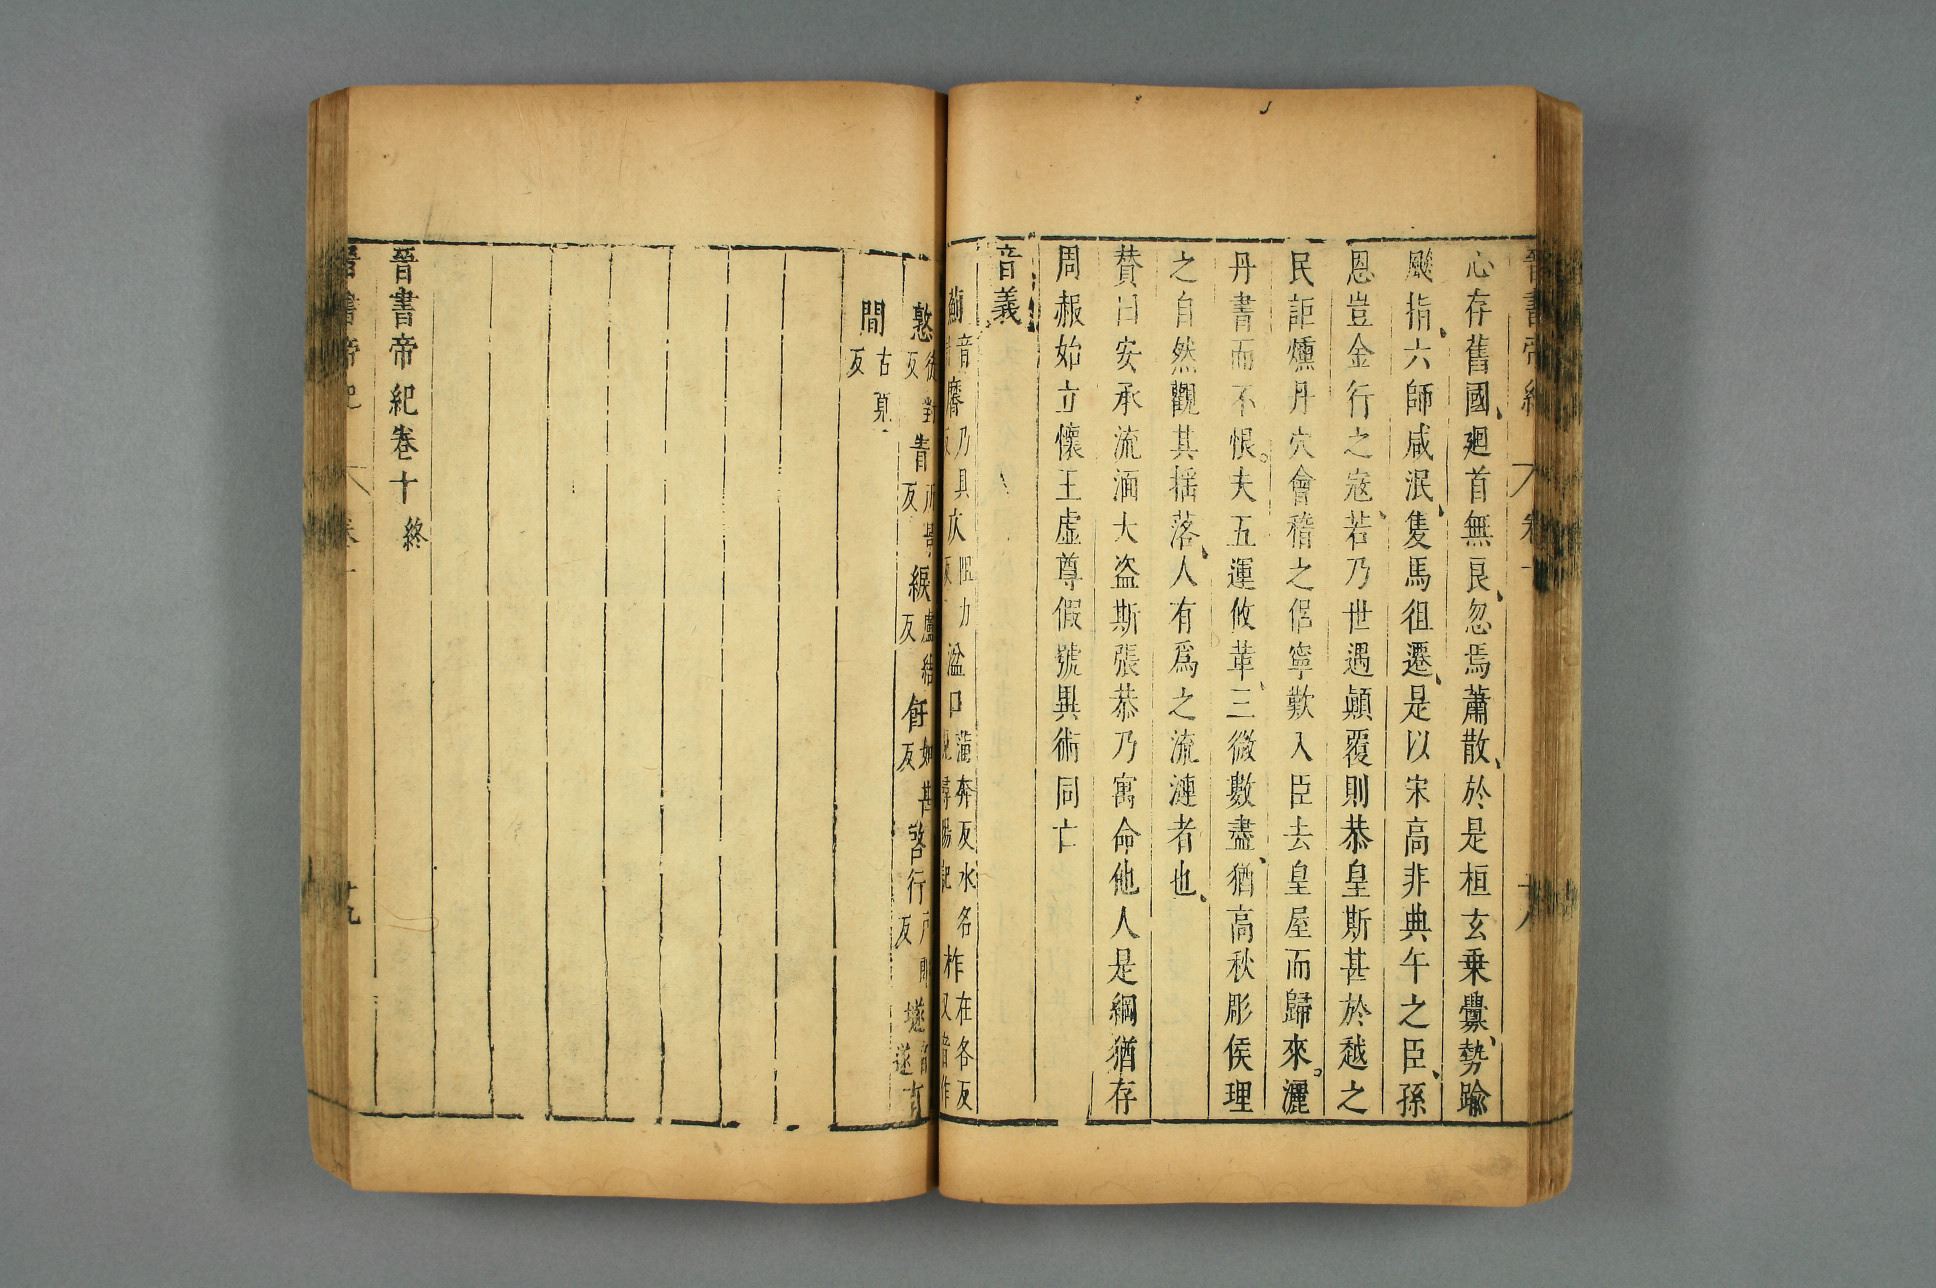 晉書帝紀 卷十 十八
心存舊國廻首無良忽焉蕭散於是桓玄乗釁勢踰
颷指六師咸泯隻馬徂遷是以宋高非典午之臣孫
恩豈金行之寇若乃世遇顛覆則恭皇斯甚於越之
民詎燻丹穴會稽之侶寧歎入臣去皇屋而歸來灑
丹書而不恨。夫五運攸革三微數盡猶高秋彫候理
之自然觀其揺落人有爲之流漣者也
賛曰安承流湎大盗斯張恭乃寓命他人是綱猶存
周赧始立懷王虚尊假號異術同亡
音義
音 乃具 力 湓口 湓奔反水名 柞在各反又音作
憝 對反 眚 反 綟盧結反 飪如甚反 啓行 反 音遂
間古莧反
晉書帝紀卷十終
十九